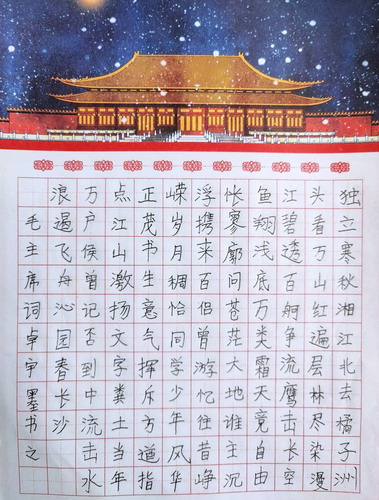 独立寒秋湘江北去橘子洲
头看万山红遍层林尽染漫
江碧透百舸争流鹰击长空
鱼翔浅底万类霜天竞自由
怅寥廓问苍茫大地谁主沉
浮携来百侣曾游忆往昔峥
嵘岁月稠恰同学少年风华
正茂书生意气挥斥方遒指
点江山激扬文字粪土当年
万户侯曾记否到中流击水
浪遏飞舟沁园春长沙
毛主席词卓宇墨书之